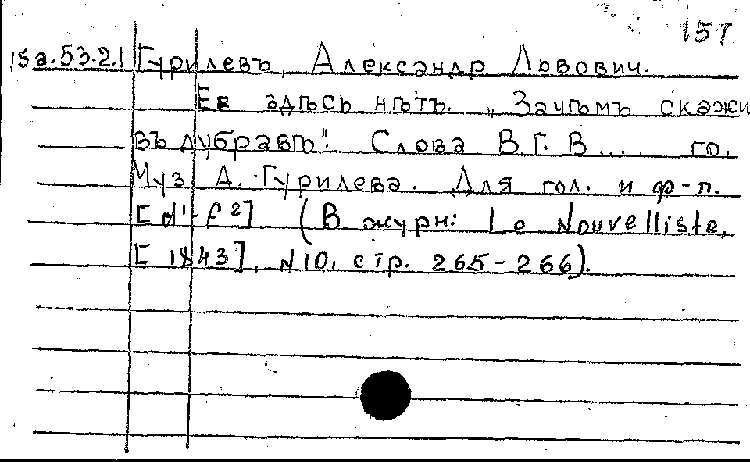 157
18a.53.2.1 Гурилевъ, Александр Львович.
Ее здѣсь нѣтъ. „Зачѣмъ скажи
въ дубравѣ". Слова В.Г. В... го.
Муз. А. Гурилева. Для гол. и ф-п.
[d'-f²] (В журн: Le Nouvelliste,
[1843], N10, стр. 265-266).